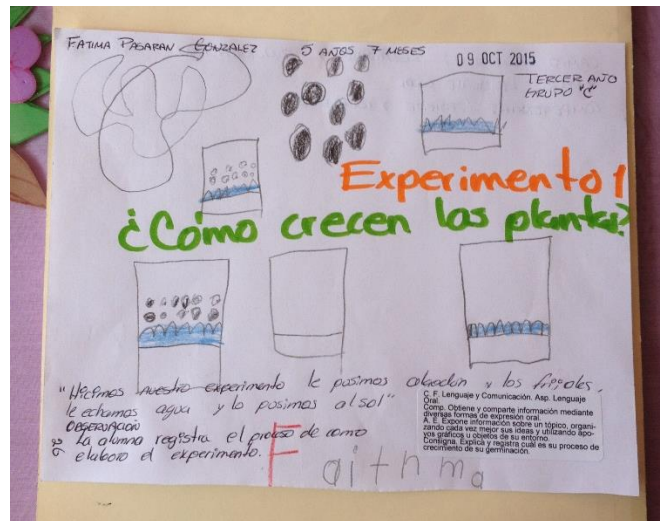 FATIMA PAGARAN GONZALEZ 5 AÑOS 7 MESES
09 OCT 2015
TERCER AÑO
GRUPO "C"
Experimento 1
¿Cómo crecen las planta?
"Hicimos nuestro experimento le pusimos algodon y los frijoles,
le echamos agua y lo pusimos al sol"
OBSERVACION
La alumna registra el proceso de como
elaboro el experimento.
C. F. Lenguaje y Comunicación. Asp. Lenguaje
Oral.
Comp. Obtiene y comparte información mediante
diversas formas de expresión oral.
A. E. Expone información sobre un tópico, organi-
zando cada vez mejor sus ideas y utilizando apo-
yos gráficos u objetos de su entorno.
Consigna. Explica y registra cuál es su proceso de
crecimiento de su germinación.
F
aitnma